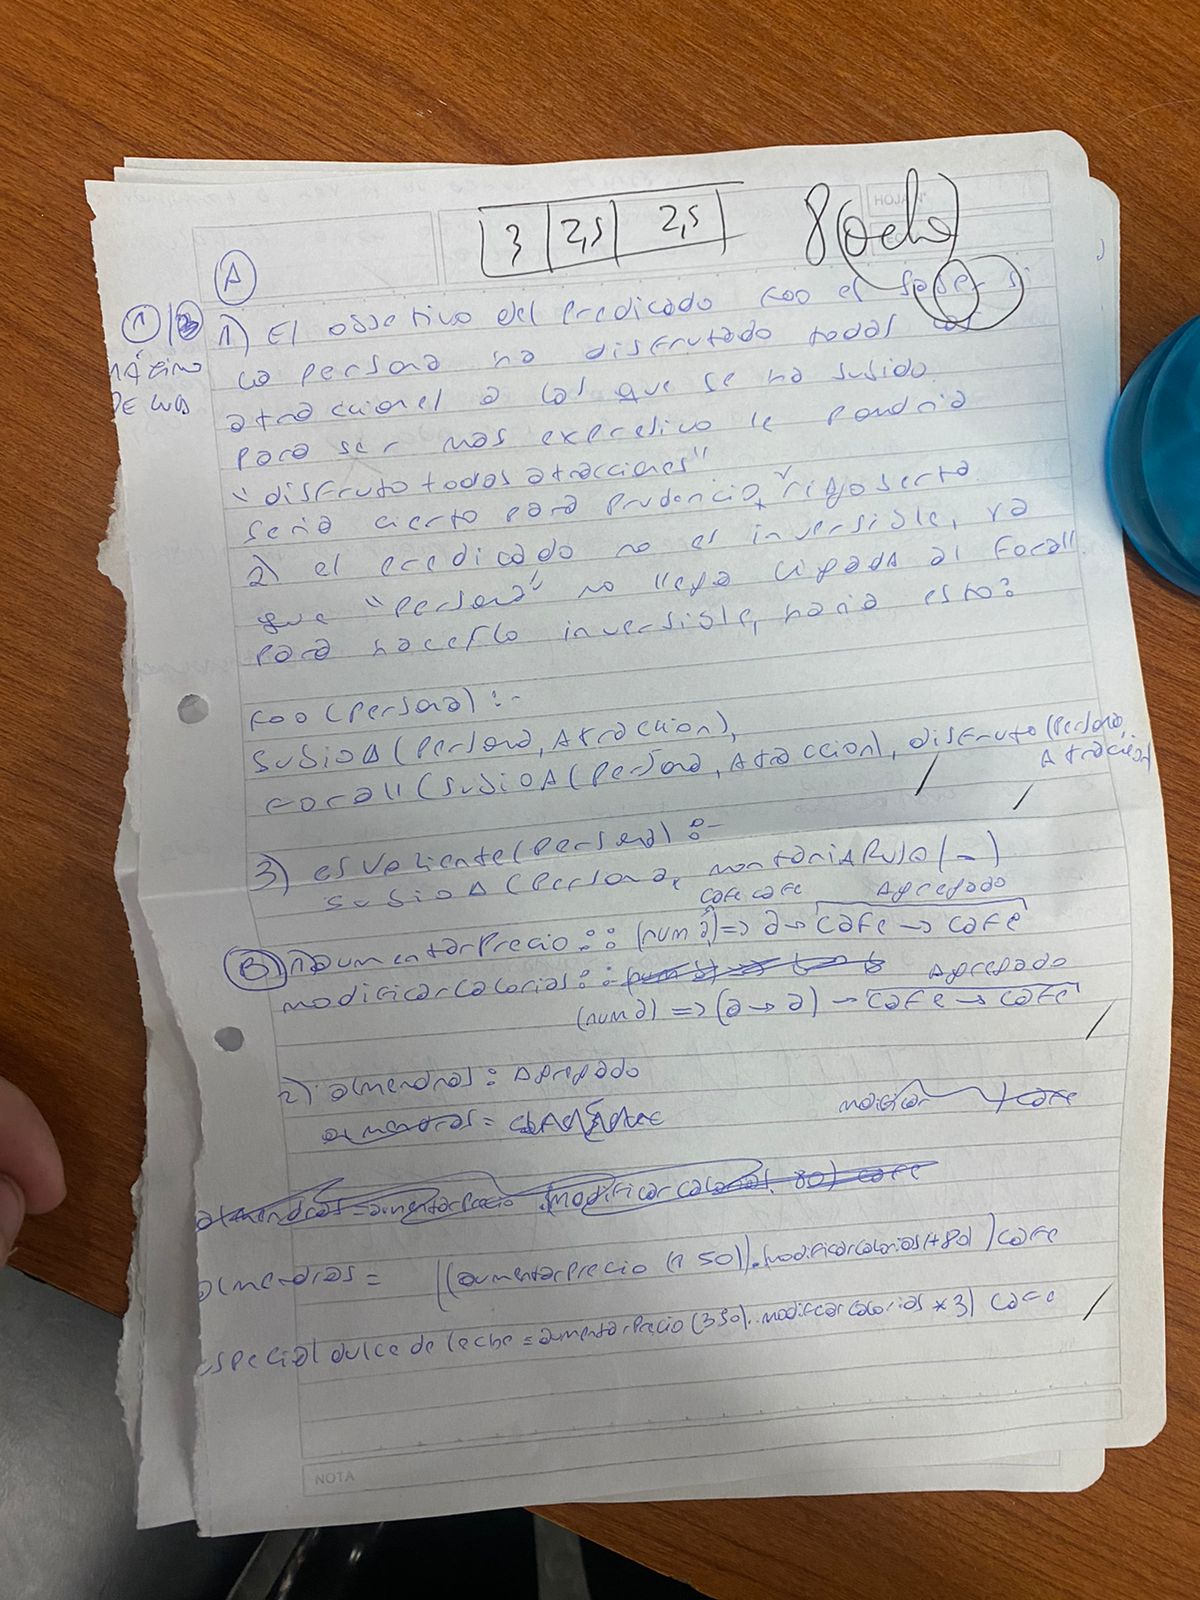 3 | 2,5 | 2,5
8 (ocho)
HOJA N°
A
1
MÁXIMO
DE LUCA
1) El objetivo del predicado foo es saber si
la persona ha disfrutado todas las
atracciones a las que se ha subido.
para ser mas expresivo le pondria
"disfruto todas atracciones"
seria cierto para prudencio, rigoberta
2) el predicado no es inversible, ya
que "persona" no llega ligada al forall
para hacerlo inversible, haria esto:
foo (persona) :-
subioA (persona, Atraccion),
forall (subioA (persona, Atraccion), disfruto (persona,
Atraccion)
3) esValiente (persona) :-
subioA (persona, montaniaRusa (_)
cafe cafe Agregado
B 1) aumentarPrecio :: (num a) => a -> cafe -> cafe
modificarCalorias :: Agregado
(num a) => (a -> a) -> cafe -> cafe
2) almendras : Agregado
almendras =
modificar cafe
almendras = aumentarPrecio . (modificarCalorias. 80) cafe
almendras = ((aumentarPrecio (150)).modificarCalorias(+80) )cafe
especial dulce de leche = aumentarPrecio (350)..modificarCalorias *3) cafe
NOTA